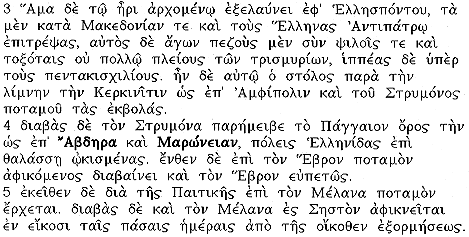 3 Ἅμα δὲ τῷ ἦρι ἀρχομένῳ ἐξελαύνει ἐφ' Ἑλλησπόντου, τὰ
μὲν κατὰ Μακεδονίαν τε καὶ τοὺς Ἕλληνας Ἀντιπάτρῳ
ἐπιτρέψας, αὐτὸς δὲ ἄγων πεζοὺς μὲν σὺν ψιλοῖς τε καὶ
τοξόταις οὐ πολλῷ πλείους τῶν τρισμυρίων, ἱππέας δὲ ὑπὲρ
τοὺς πεντακισχιλίους. ἦν δὲ αὐτῷ ὁ στόλος παρὰ τὴν
λίμνην τὴν Κερκινῖτιν ὡς ἐπ' Ἀμφίπολιν καὶ τοῦ Στρυμόνος
ποταμοῦ τὰς ἐκβολάς.
4 διαβὰς δὲ τὸν Στρυμόνα παρήμειβε τὸ Πάγγαιον ὄρος τὴν
ὡς ἐπ' Ἄβδηρα καὶ Μαρώνειαν, πόλεις Ἑλληνίδας ἐπὶ
θαλάσσῃ ᾠκισμένας. ἔνθεν δὲ ἐπὶ τὸν Ἕβρον ποταμὸν
ἀφικόμενος διαβαίνει καὶ τὸν Ἕβρον εὐπετῶς.
5 ἐκεῖθεν δὲ διὰ τῆς Παιτικῆς ἐπὶ τὸν Μέλανα ποταμὸν
ἔρχεται. διαβὰς δὲ καὶ τὸν Μέλανα ἐς Σηστὸν ἀφικνεῖται
ἐν εἴκοσι ταῖς πάσαις ἡμέραις ἀπὸ τῆς οἴκοθεν ἐξορμήσεως.